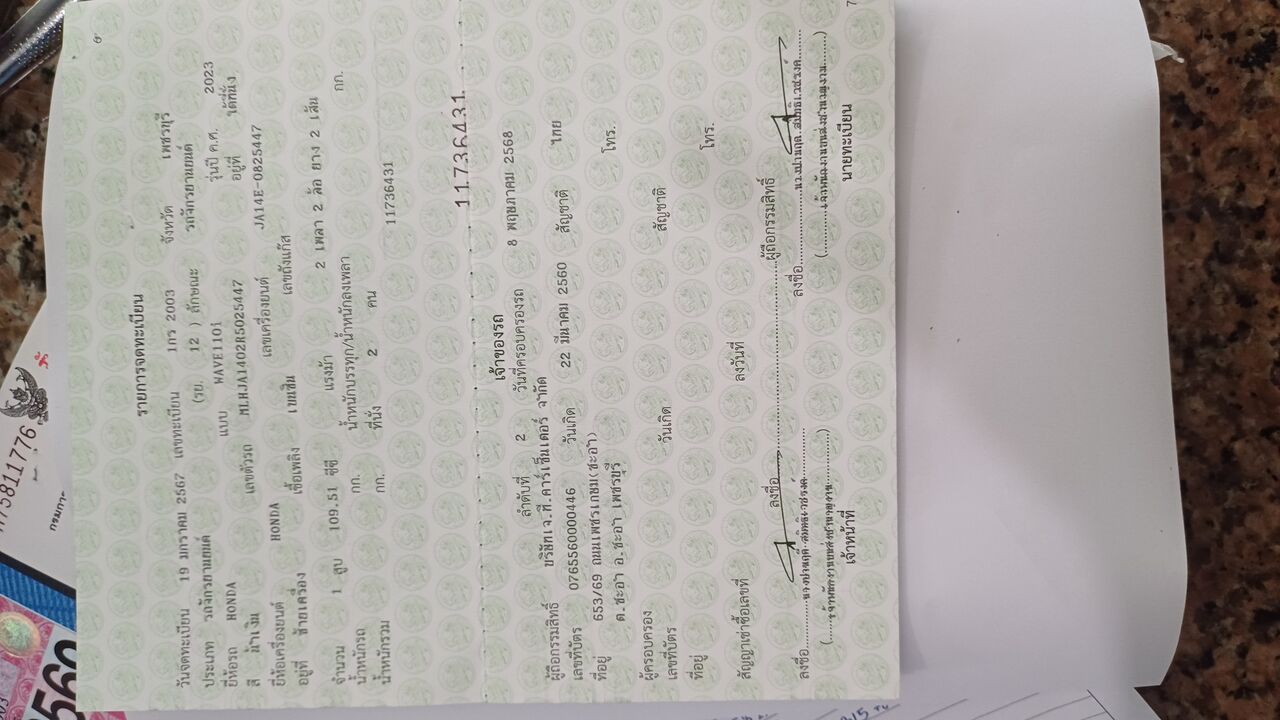 รายการจดทะเบียน
วันจดทะเบียน 19 มกราคม 2567 เลขทะเบียน 1กร 2003 จังหวัด เพชรบุรี
ประเภท รถจักรยานยนต์ (รย. 12 ) ลักษณะ รถจักรยานยนต์
ยี่ห้อรถ HONDA แบบ WAVE110i รุ่นปี ค.ศ. 2023
สี น้ำเงิน เลขตัวรถ MLHJA1402R5025447 อยู่ที่ ใต้ที่นั่ง
ยี่ห้อเครื่องยนต์ HONDA เลขเครื่องยนต์ JA14E-0825447
อยู่ที่ ซ้ายเครื่อง เชื้อเพลิง เบนซิน เลขถังแก๊ส
จำนวน 1 สูบ 109.51 ซีซี แรงม้า 2 เพลา 2 ล้อ ยาง 2 เส้น
น้ำหนักรถ กก. น้ำหนักบรรทุก/น้ำหนักลงเพลา กก.
น้ำหนักรวม กก. ที่นั่ง 2 คน 11736431
11736431
เจ้าของรถ
ลำดับที่ 2 วันที่ครอบครองรถ 8 พฤษภาคม 2568
ผู้ถือกรรมสิทธิ์ บริษัทเจ.ที.คาร์เซ็นเตอร์ จำกัด
เลขที่บัตร 0765560000446 วันเกิด 22 มีนาคม 2560 สัญชาติ ไทย
ที่อยู่ 653/69 ถนนเพชรเกษม(ชะอำ) โทร.
ต.ชะอำ อ.ชะอำ เพชรบุรี
ผู้ครอบครอง
เลขที่บัตร วันเกิด สัญชาติ
ที่อยู่ โทร.
สัญญาเช่าซื้อเลขที่ ลงวันที่
ลงชื่อ ผู้ถือกรรมสิทธิ์
ลงชื่อ ลงชื่อ
เจ้าหน้าที่ นายทะเบียน
5811776
กรมการ